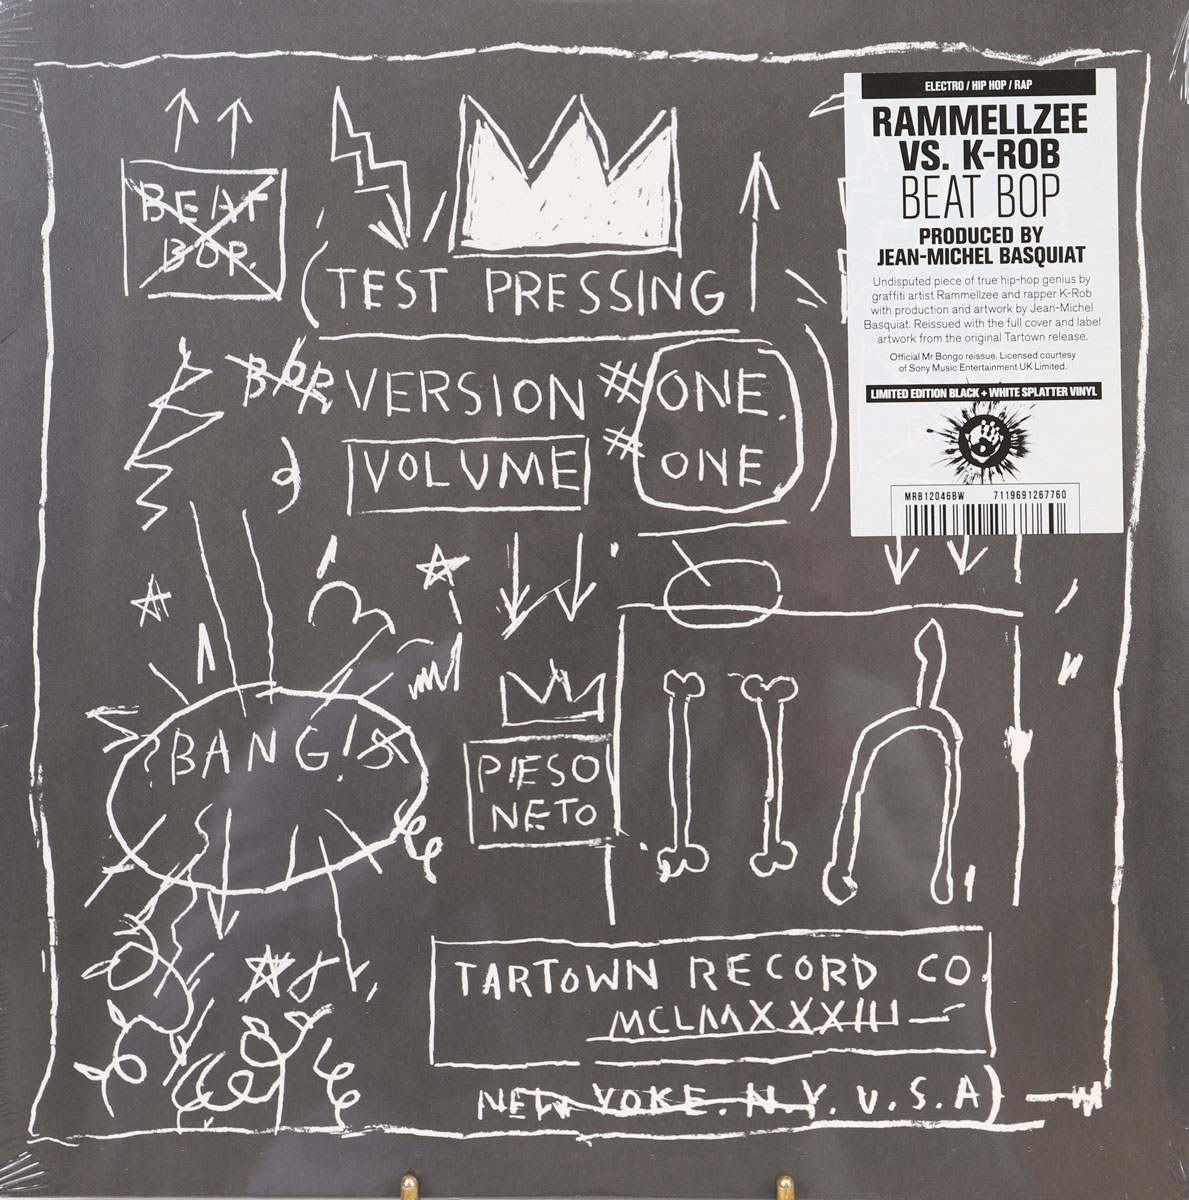 BEAT
BOP.
(TEST PRESSING
BOP VERSION # ONE.
VOLUME # ONE
?BANG!
PIESO
NETO
TARTOWN RECORD CO.
MCLMXXXIII
NEW YOKE. N.Y. U.S.A)
ELECTRO / HIP HOP / RAP
RAMMELLZEE
VS. K-ROB
BEAT BOP
PRODUCED BY
JEAN-MICHEL BASQUIAT
Undisputed piece of true hip-hop genius by
graffiti artist Rammellzee and rapper K-Rob
with production and artwork by Jean-Michel
Basquiat. Reissued with the full cover and label
artwork from the original Tartown release.
Official Mr Bongo reissue. Licensed courtesy
of Sony Music Entertainment UK Limited.
LIMITED EDITION BLACK + WHITE SPLATTER VINYL
MRB12046BW 7119691267760